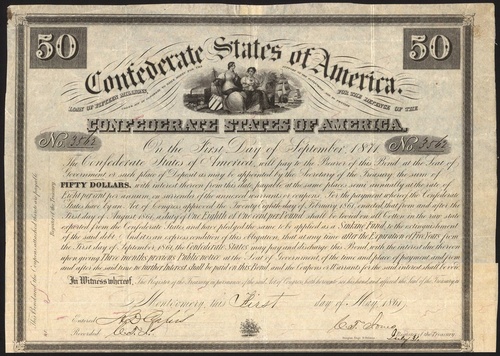 50 Confederate States of America. 50
LOAN OF FIFTEEN MILLIONS,
FOR THE DEFENCE OF THE
CONFEDERATE STATES OF AMERICA.
No. 3562 On the First Day of September, 1871 No. 3562
The Confederate States of America, will pay to the Bearer of this Bond at the Seat of
Government or such place of Deposit as may be appointed by the Secretary of the Treasury the sum of
FIFTY DOLLARS, with interest thereon from this date, payable at the same place, semi annually, at the rate of
Eight per cent per annum, on surrender of the annexed warrants or coupons. For the payment whereof the Confederate
States have by an Act of Congress approved the Twenty Eighth day of February 1861, enacted that from and after the
First day of August 1861, a duty of One Eighth of One cent per Pound shall be levied on all Cotton in the raw state
exported from the Confederate States, and have pledged the same to be applied as a Sinking Fund, to the extinguishment
of the said debt. And it is an express condition of this obligation, that at any time after the Expiration of Five Years from
the First day of September 1861, the Confederate States may pay and discharge this Bond, with the interest due thereon
upon giving Three months previous Public notice at the Seat of Government, of the time and place of payment, and from
and after the said time no further Interest shall be paid on this Bond and the Coupons or Warrants for the said interest shall be void.
In Witness whereof, The Register of the Treasury in pursuance of the said Act of Congress, hath hereunto set his hand and affixed the Seal of the Treasury at
Montgomery, this First day of May 1861
Entered
Recorded